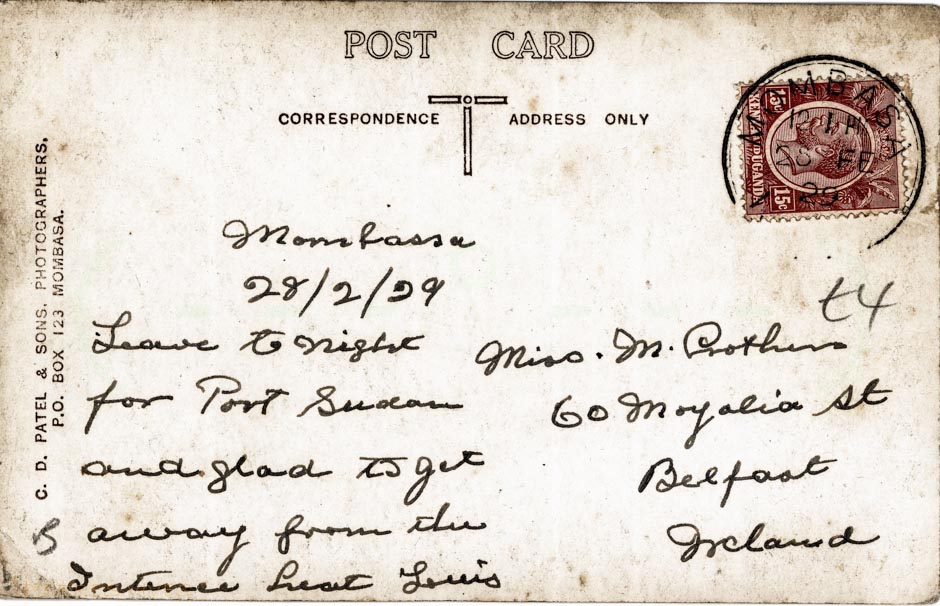 POST CARD
CORRESPONDENCE ADDRESS ONLY
C. D. PATEL & SONS, PHOTOGRAPHERS,
P.O. BOX 123 MOMBASA.
MOMBASA
28 FE
29
15c
UGANDA
15c
t4
Mombassa
28/2/29
Leave to night
for Port Sudan
and glad to get
away from the
Intence heat Louis
Miss. M. Prothers
60 Moyalia St
Belfast
Ireland